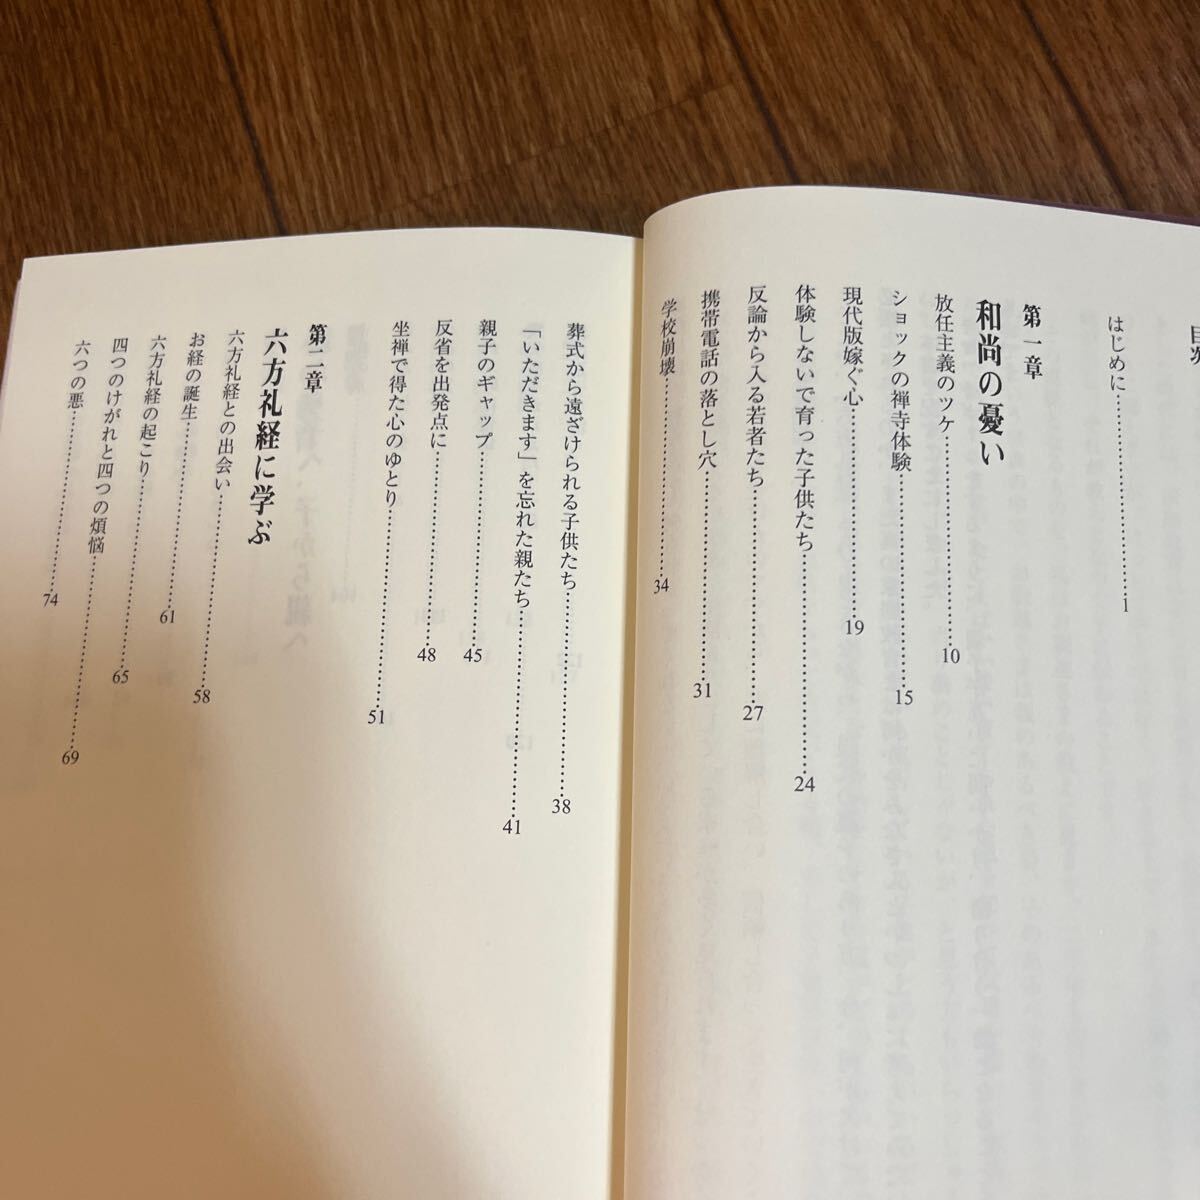 目次
はじめに……1
第一章
和尚の憂い
放任主義のツケ……10
ショックの禅寺体験……15
現代版嫁ぐ心……19
体験しないで育った子供たち……24
反論から入る若者たち……27
携帯電話の落とし穴……31
学校崩壊……34
葬式から遠ざけられる子供たち……38
「いただきます」を忘れた親たち……41
親子のギャップ……45
反省を出発点に……48
坐禅で得た心のゆとり……51
第二章
六方礼経に学ぶ
六方礼経との出会い……58
お経の誕生……61
六方礼経の起こり……65
四つのけがれと四つの煩悩……69
六つの悪……74